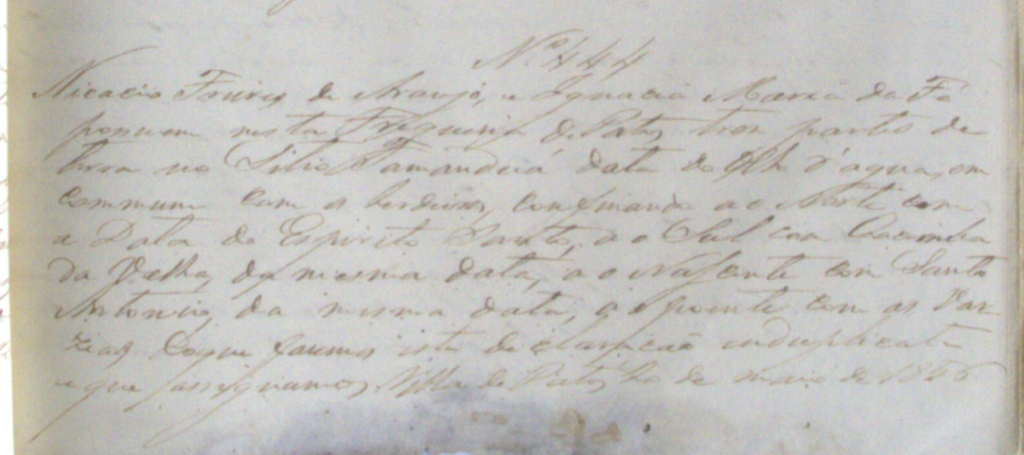 Nº 444
Nicacio Freires de Araujo, e Ignacia Maria da Fé
possuem nesta Freguesia de Patos, tres partes de
terra no Sitio Tamanduá data do Olho d'agua, em
commum com os herdeiros, confinando ao Norte com
a Data do Espirito Santo, ao Sul com Cacimba
da Velha, da mesma data, ao Nascente com Santo
Antonio, da mesma data, ao poente com as Var
zeas do que fazemos esta declaração induplicata
e que assignamos, Villa de Patos, de maio de 1856